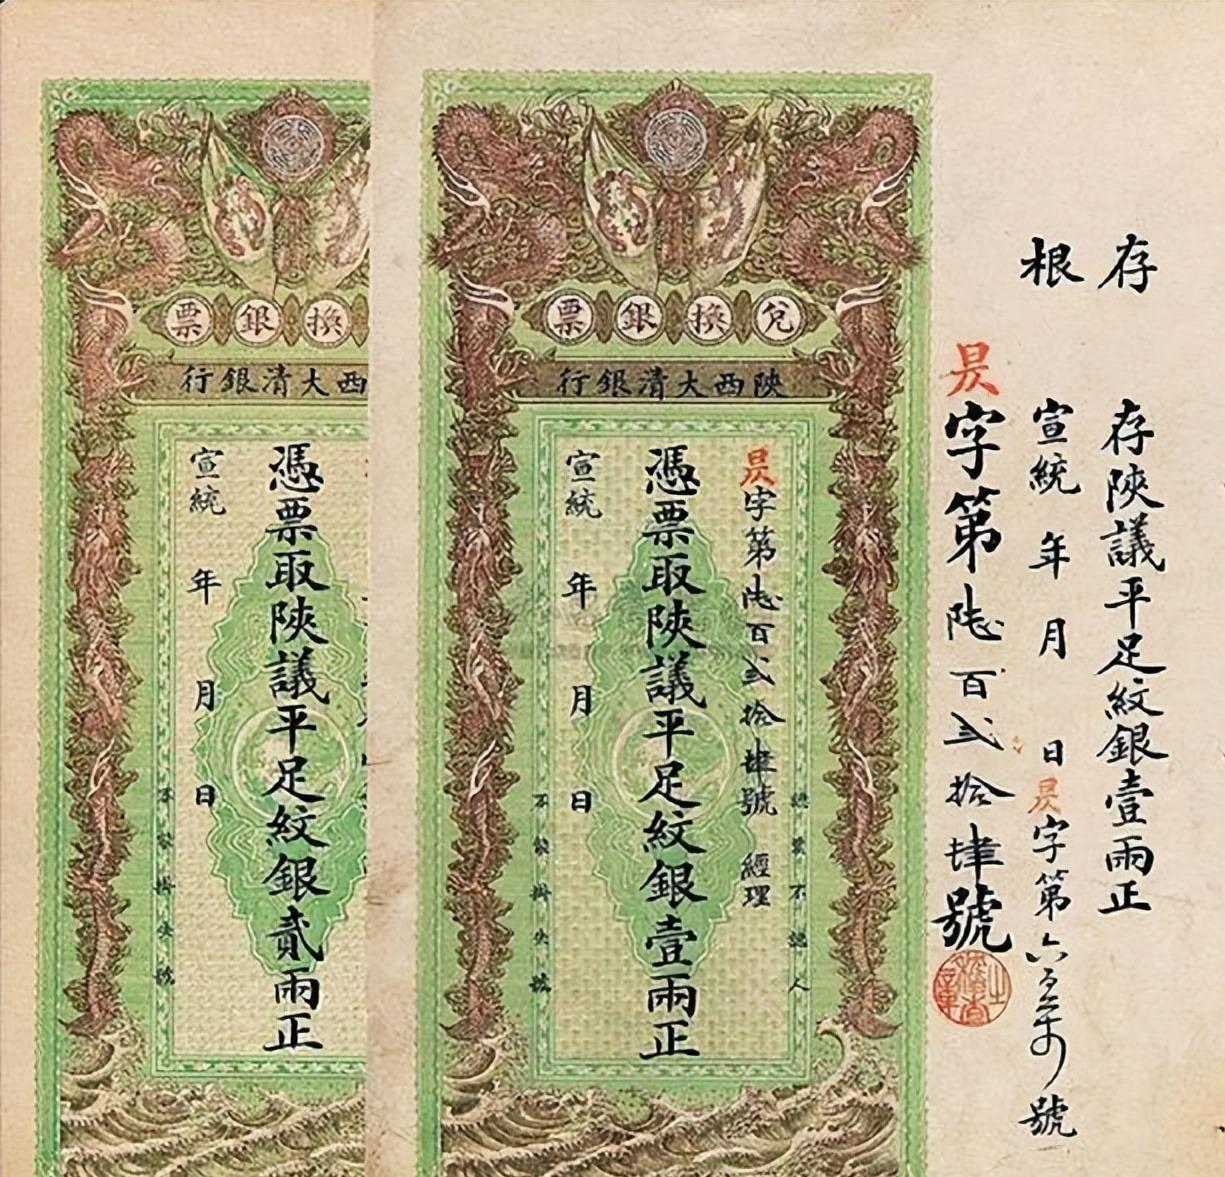 存根
存陝議平足紋銀壹兩正
宣統 年 月 日 昃字第六百二十四號
昃字第陸百貳拾肆號
兌換銀票
陝西大清銀行
認票不認人
昃字第陸百貳拾肆號 經理
憑票取陝議平足紋銀壹兩正
宣統 年 月 日
不能掛失號
換銀票
西大清銀行
憑票取陝議平足紋銀貳兩正
宣統 年 月 日